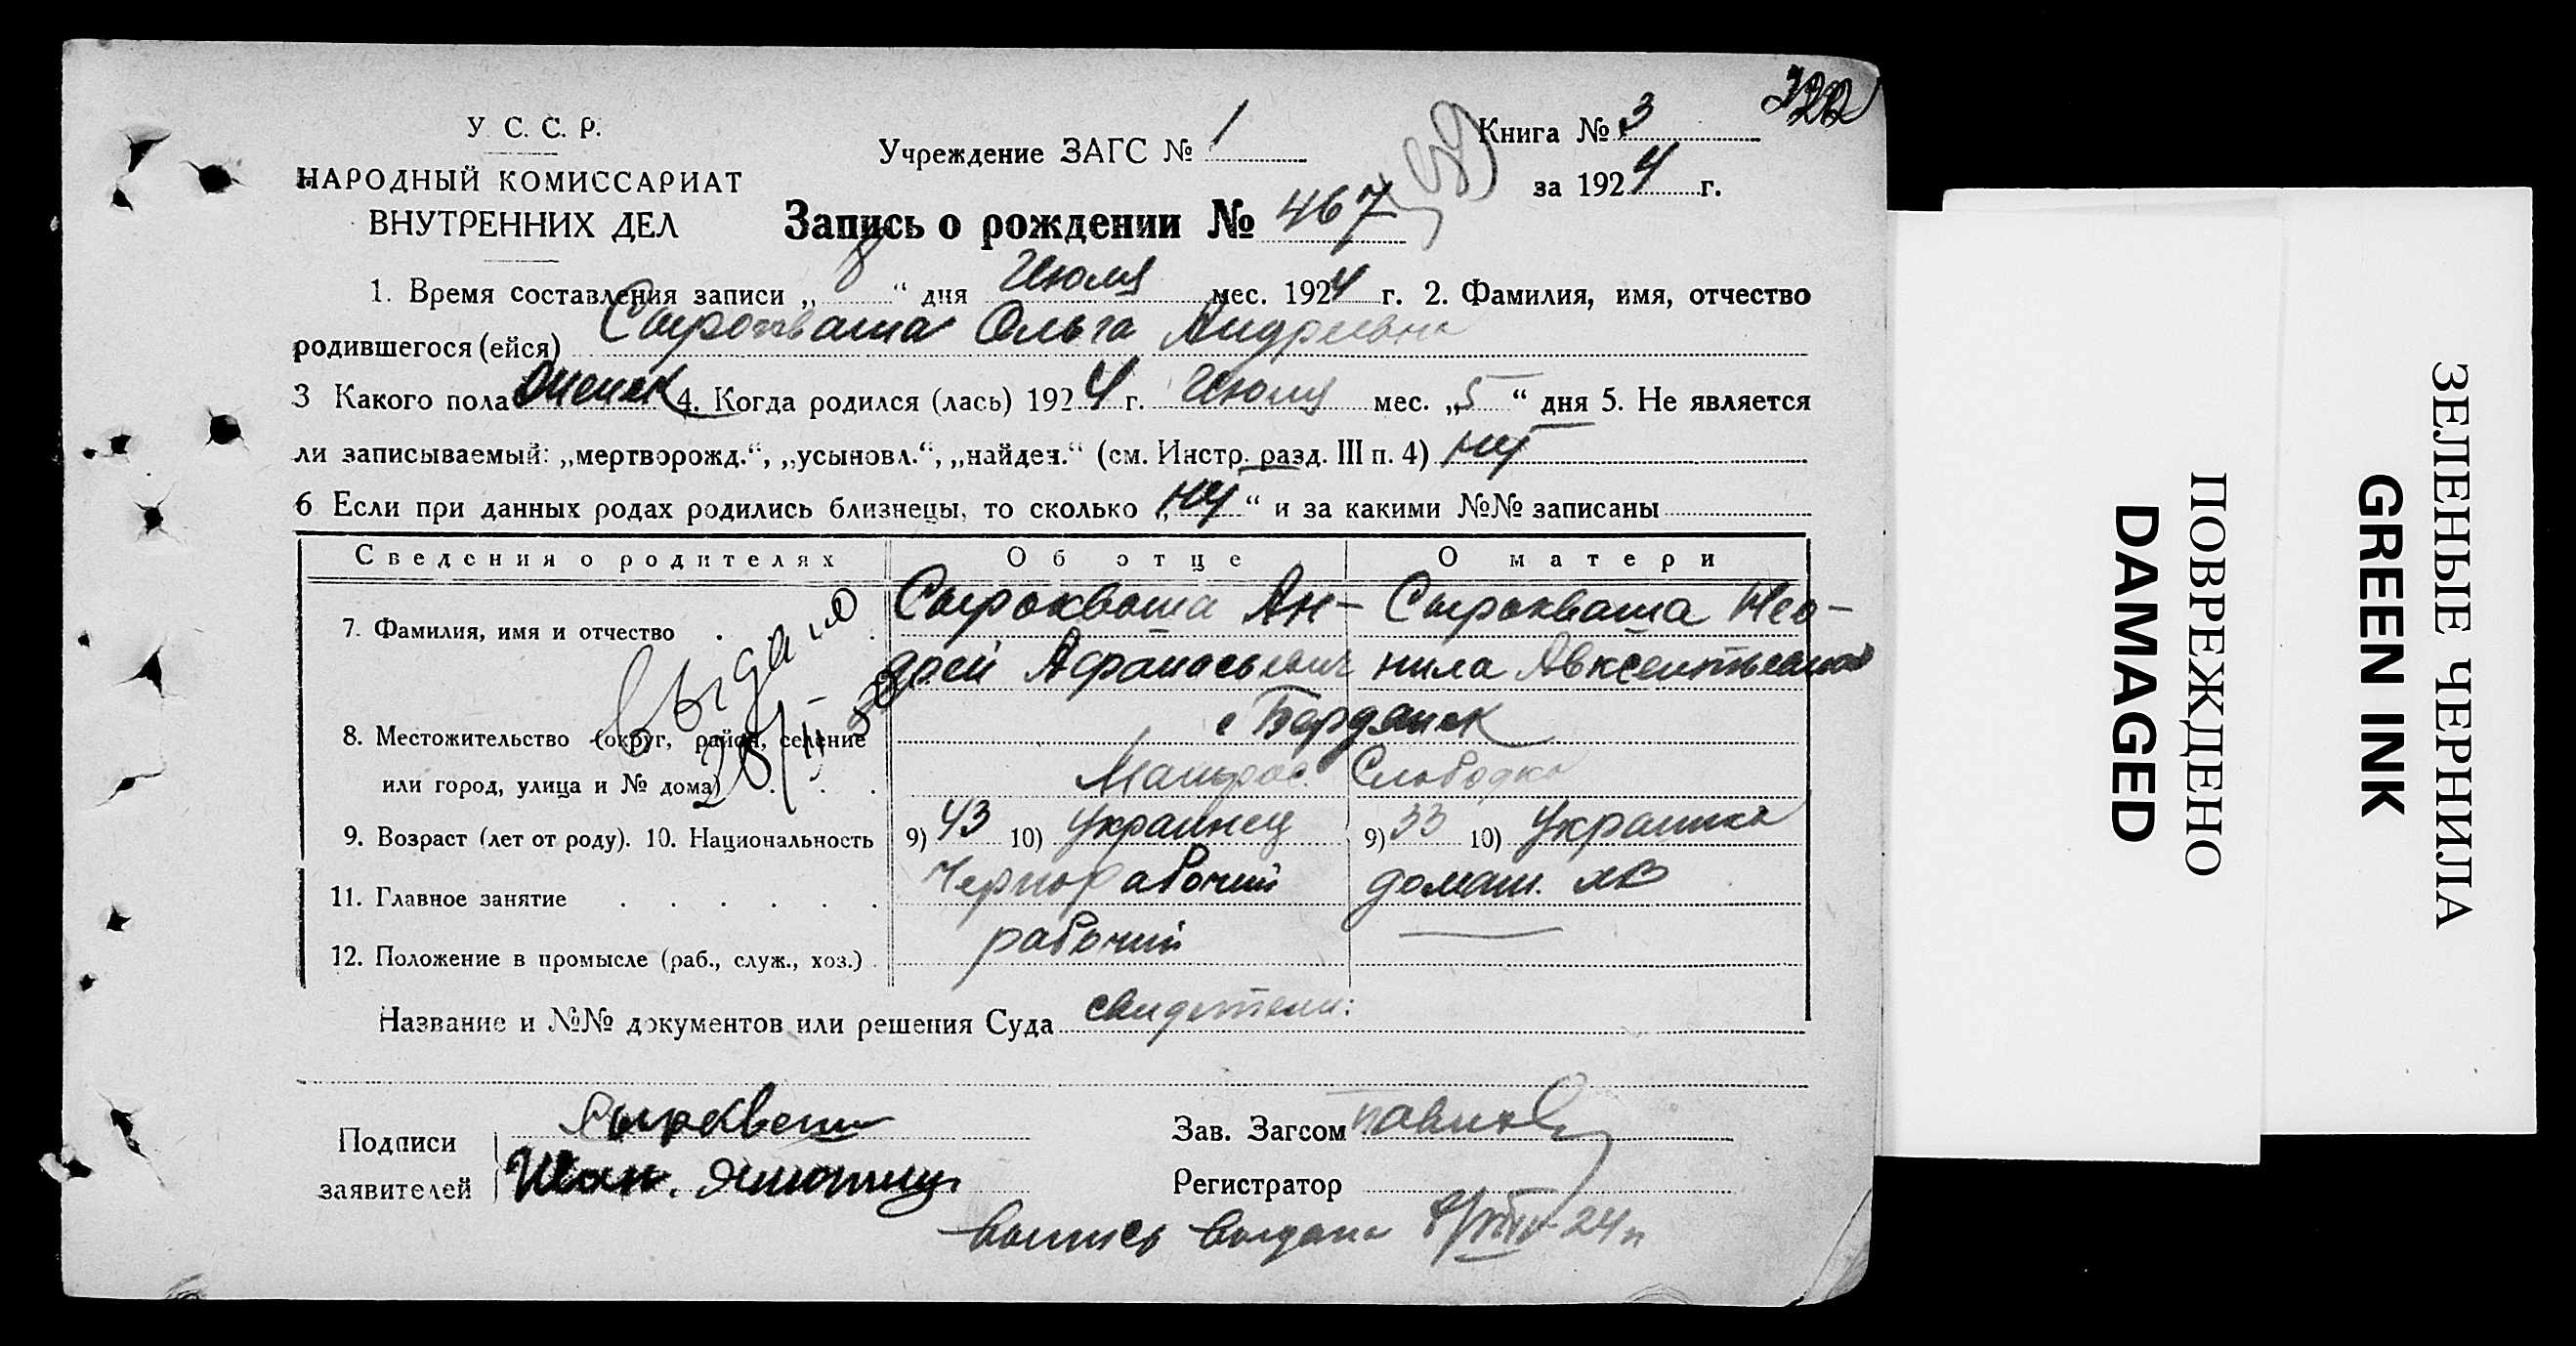 322
У С. С. Р.
НАРОДНЫЙ КОМИССАРИАТ
ВНУТРЕННИХ ДЕЛ
Учреждение ЗАГС № 1
Книга № 3
за 1924 г.
Запись о рождении № 467
1. Время составления записи „ 8 “ дня Июля мес. 1924 г. 2. Фамилия, имя, отчество
родившегося (ейся) Сырокваша Ольга Андреевна
3 Какого пола женск 4. Когда родился (лась) 1924 г. Июля мес. „5“ дня 5. Не является
ли записываемый: „мертворожд.“, „усыновл.“, „найден.“ (см. Инстр. разд. III п. 4) нет
6 Если при данных родах родились близнецы, то сколько „нет“ и за какими №№ записаны
Сведения о родителях Об отце О матери
7. Фамилия, имя и отчество . . Сырокваша Ан- Сырокваша Нео-
дрей Афанасьевич нила Авксентьевна
выдано
8. Местожительство (округ, район, селение г Бердянск
или город, улица и № дома) . . . Матрос. Слободка
9. Возраст (лет от роду). 10. Национальность 9) 43 10) Украинец 9) 33 10) Украинка
11. Главное занятие . . . . . . Чернорабочий домаш. хоз
12. Положение в промысле (раб., служ., хоз.) . рабочий —
Название и №№ документов или решения Суда свидетели:
Подписи
заявителей
Зав. Загсом
Регистратор
выпись выдана
ПОВРЕЖДЕНО
DAMAGED
ЗЕЛЕНЫЕ ЧЕРНИЛА
GREEN INK